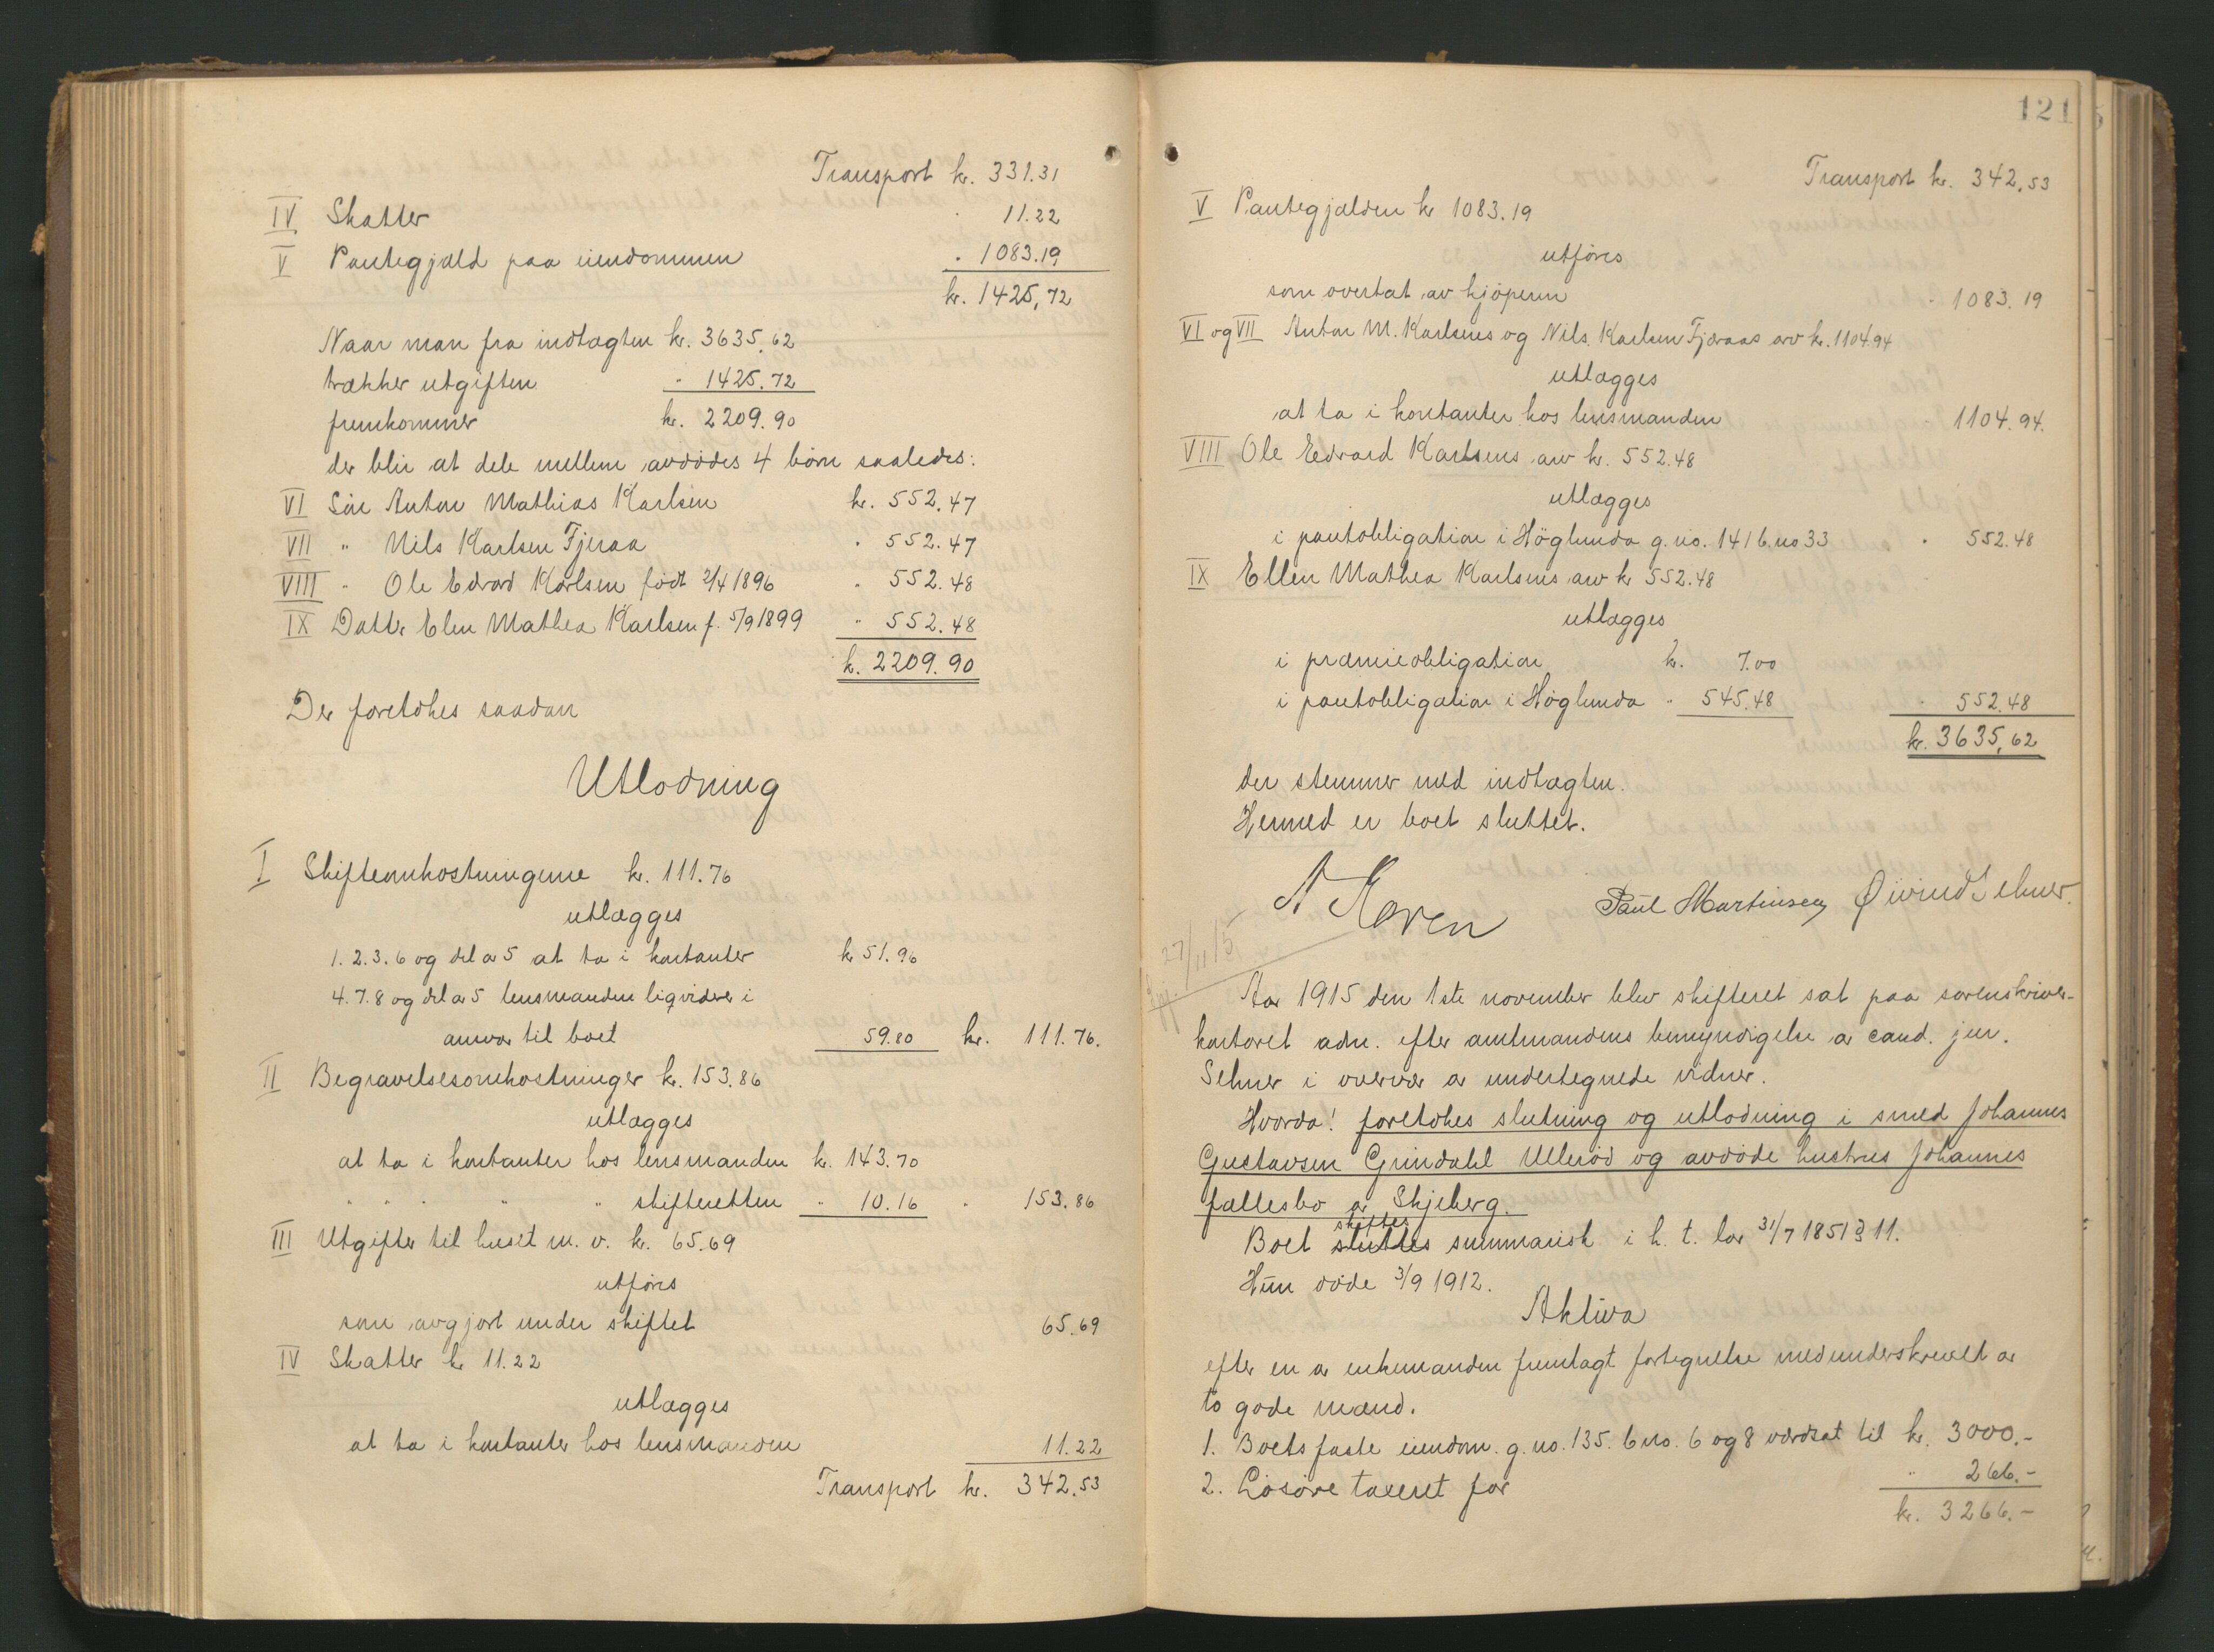 Transport kr. 331.31
IV Skatter " 11.22
V Pantegjæld paa eiendommen " 1083.19
kr. 1425,72
Naar man fra indtægten kr. 3635.62
trækker utgiften " 1425.72
fremkommer kr. 2209.90
der blir at dele mellem avdødes 4 børn saaledes:
VI Søn Anton Mathias Karlsen kr. 552.47
VII " Nils Karlsen Fjeraa " 552.47
VIII " Ole Edvard Karlsen født 2/4 1896 " 552.48
IX Datter Elen Mathea Karlsen f. 5/9 1899 " 552.48
kr. 2209.90
Der foretokes saadan
Utlodning
I Skifteomkostningerne kr. 111.76
utlægges
1. 2. 3. 6 og del av 5 at ta i kontanter kr 51.96
4. 7. 8 og del av 5 lensmanden liqviderer i
ansvar til boet 59.80 kr. 111.76.
II Begravelsesomkostninger kr. 153.86
utlægges
at ta i kontanter hos lensmanden kr. 143.70
" " " " " skifteretten " 10.16 " 153.86
III Utgifter til huset m. v. kr. 65.69
utføres
som avgjort under skiftet 65.69
IV Skatter kr 11.22
utlægges
at ta i kontanter hos lensmanden 11.22
Transport kr. 342.53
121
Transport kr. 342,53
V Pantegjælden kr 1083.19
utføres
som overtat av kjøperen " 1083.19
VI og VII Anton M. Karlsens og Nils Karlsen Fjæraas arv kr. 1104.94
utlægges
at ta i kontanter hos lensmanden " 1104.94.
VIII Ole Edvard Karlsens arv kr. 552.48
utlægges
i pantobligation i Höglunda g. no. 141 b. no 33 " 552.48
IX Ellen Mathea Karlsens arv kr 552.48
utlægges
i præmieobligation kr. 7.00
i pantobligation i Höglunda " 545.48 " 552.48
kr. 3635,62
der stemmer med indtægten.
Hermed er boet sluttet.
Paul Martinsen Øivind Selmer.
27/11 15
Aar 1915 den 1ste november blev skifteret sat paa sorenskriver-
kontoret adm. efter amtmandens bemyndigelse av cand. jur.
Selmer i overvær av undertegnede vidner.
Hvorda! foretokes slutning og utlodning i smed Johannes
Gustavsen Grindahl Ullerød og avdøde hustrus Johannes
fællesbo av Skjeberg.
skiftes
Boet sluttes summarisk i h. t. lov 31/7 1851 § 11.
Hun døde 3/9 1912.
Aktiva
efter en av enkemanden fremlagt fortegnelse medunderskrevet av
to gode mænd.
1. Boets faste eiendom g. no. 135. b no. 6 og 8 værdsat til kr. 3000.-
2. Løsøre taxeret for " 266.-
kr. 3266.-